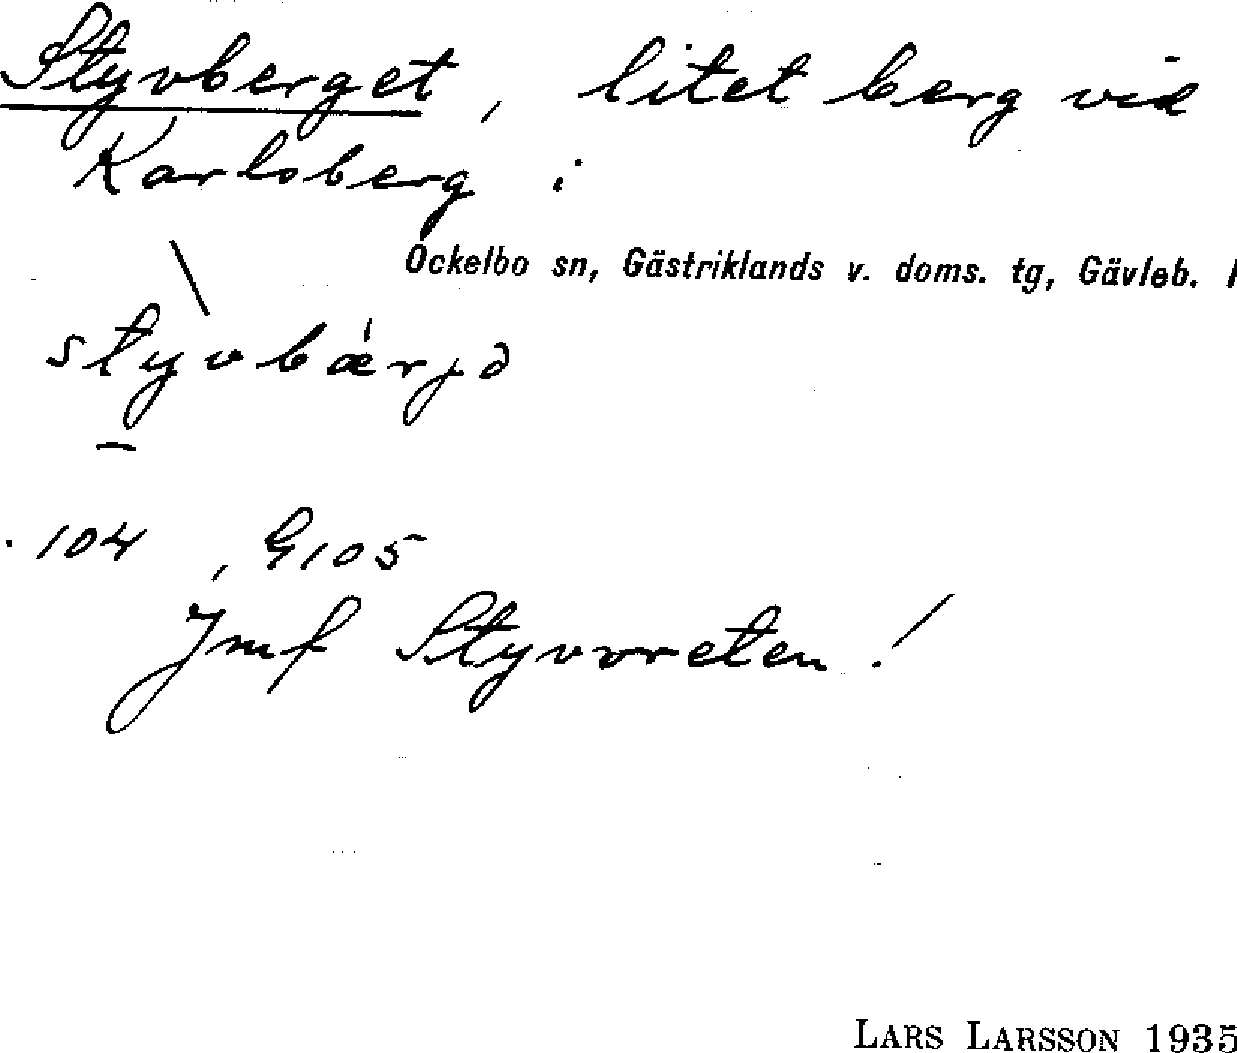 Styvberget, litet berg vid
Karlsberg i
Ockelbo sn, Gästriklands v. doms. tg, Gävleb. l
styvbærjə
104, G105
Jmf Styvvreten!
LARS LARSSON 1935